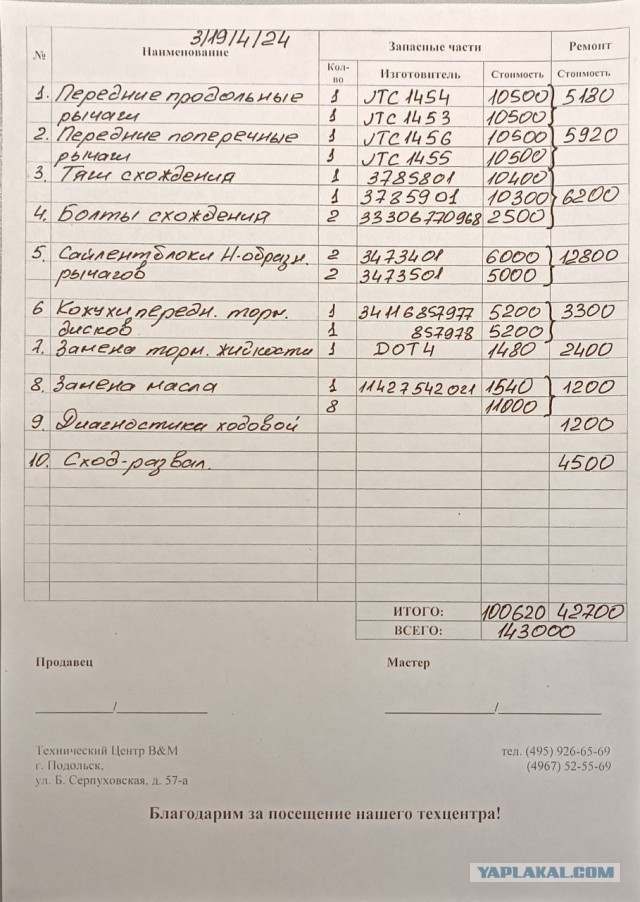 3/19/4/24
№ Наименование Запасные части Ремонт
Кол-во Изготовитель Стоимость Стоимость
1. Передние продольные 1 JTC 1454 10500 5180
рычаги 1 JTC 1453 10500
2. Передние поперечные 1 JTC 1456 10500 5920
рычаги 1 JTC 1455 10500
3. Тяги схождения 1 3785801 10400
1 3785901 10300 6200
4. Болты схождения 2 33306770968 2500
5. Сайлентблоки H-образн. 2 3473401 6000 12800
рычагов 2 3473501 5000
6 Кожухи передн. торм. 1 34116857977 5200 3300
дисков 1 857978 5200
7. Замена торм. жидкости 1 DOT4 1480 2400
8. Замена масла 1 11427542021 1540 1200
8 11000
9. Диагностика ходовой 1200
10. Сход-развал. 4500
ИТОГО: 100620 42700
ВСЕГО: 143000
Продавец Мастер
/ /
Технический Центр В&М тел. (495) 926-65-69
г. Подольск, (4967) 52-55-69
ул. Б. Серпуховская, д. 57-а
Благодарим за посещение нашего техцентра!
YAPLAKAL.COM